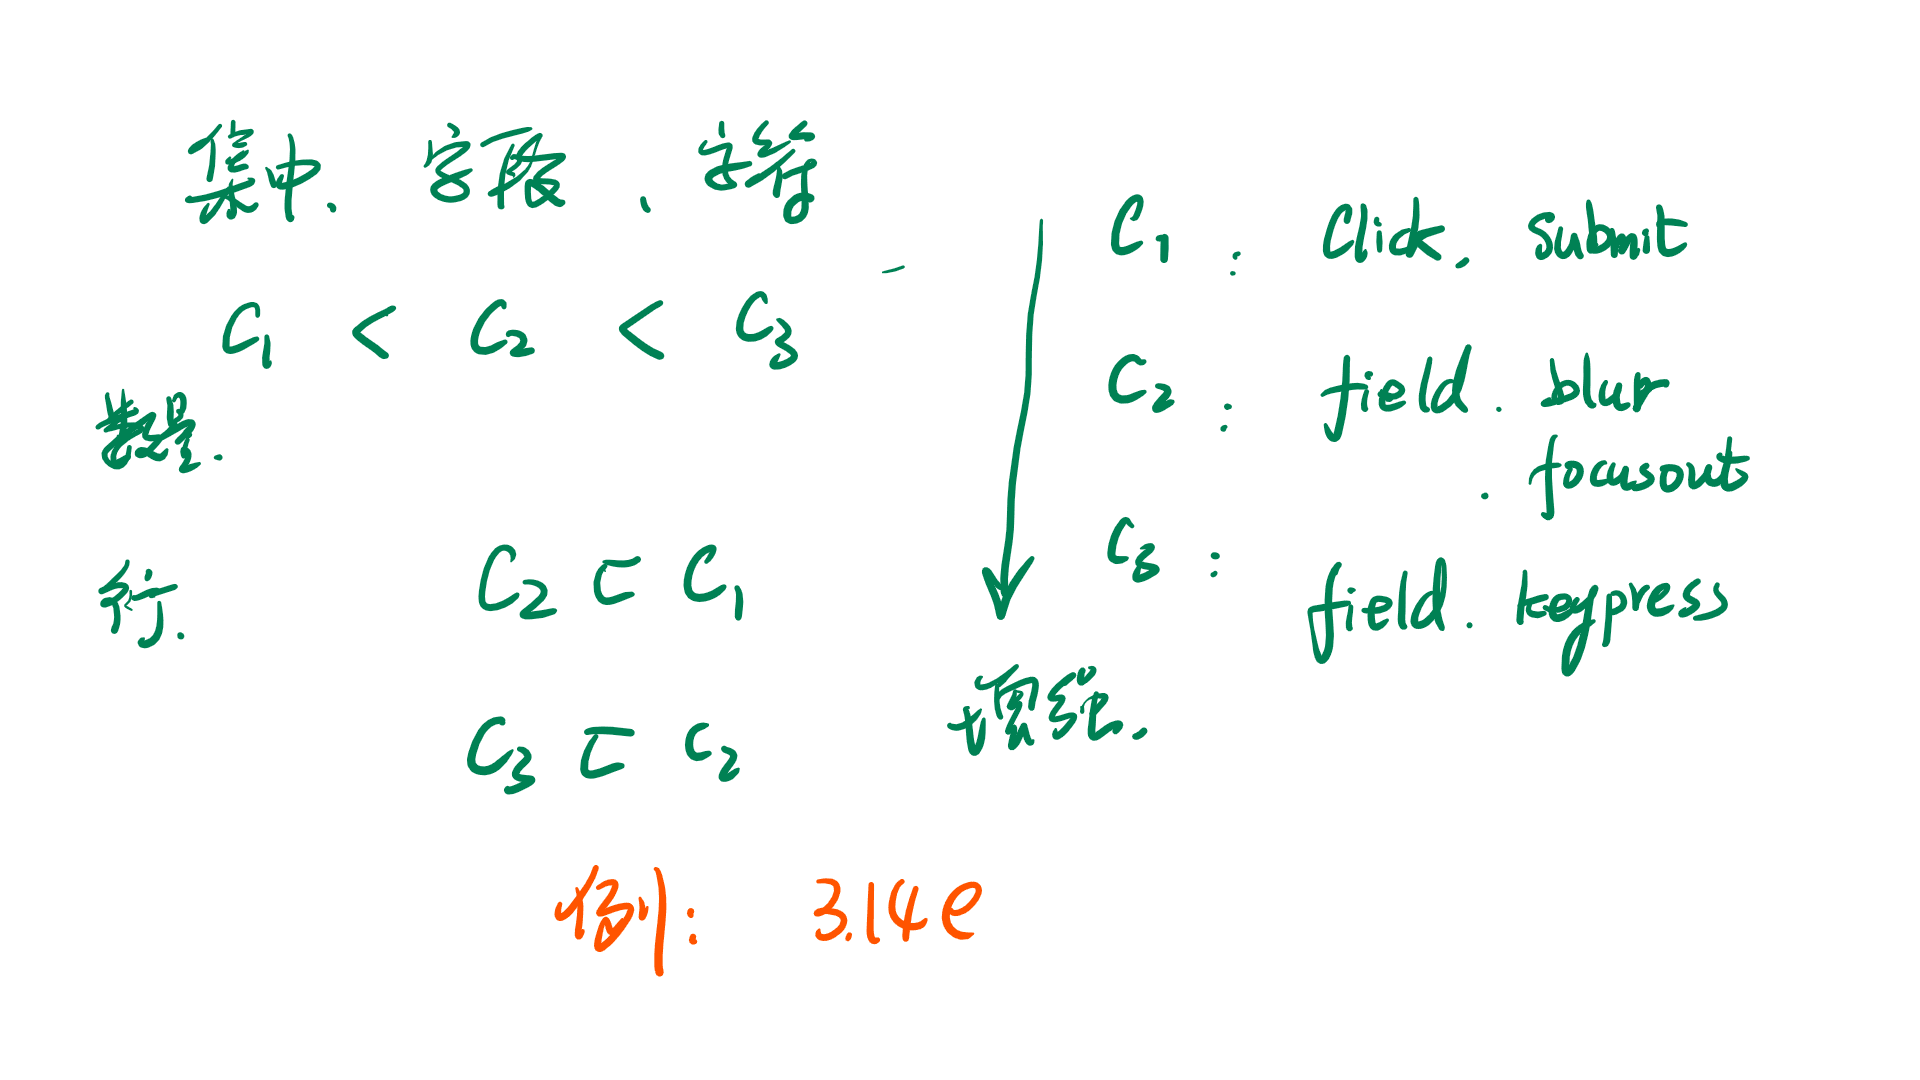 集中、字段、字符
C₁ < C₂ < C₃
数量.
行. C₂ ⊏ C₁
C₃ ⊏ C₂
C₁ : Click, submit
C₂ : field. blur
. focusout
C₃ :
field. keypress
增强.
例: 3.14e